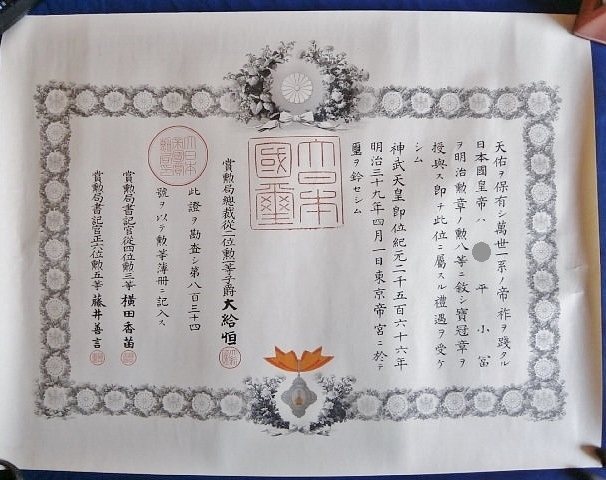 天佑ヲ保有シ萬世一系ノ帝祚ヲ踐タル
日本國皇帝ハ 平小冨
ヲ明治勲章ノ勲八等ニ敘シ寶冠章ヲ
授與ス即チ此位ニ屬スル禮遇ヲ受ケ
シム
神武天皇即位紀元二千五百六十六年
明治三十九年四月一日東京帝宮ニ於テ
璽ヲ鈐セシム
大日本
國璽
賞勲局總裁從二位勲一等子爵大給恒
此證ヲ勘査シ第八百三十四
號ヲ以テ勲等簿冊ニ記入ス
賞勲局書記官從四位勲三等橫田香苗
賞勲局書記官正六位勲五等藤井善言